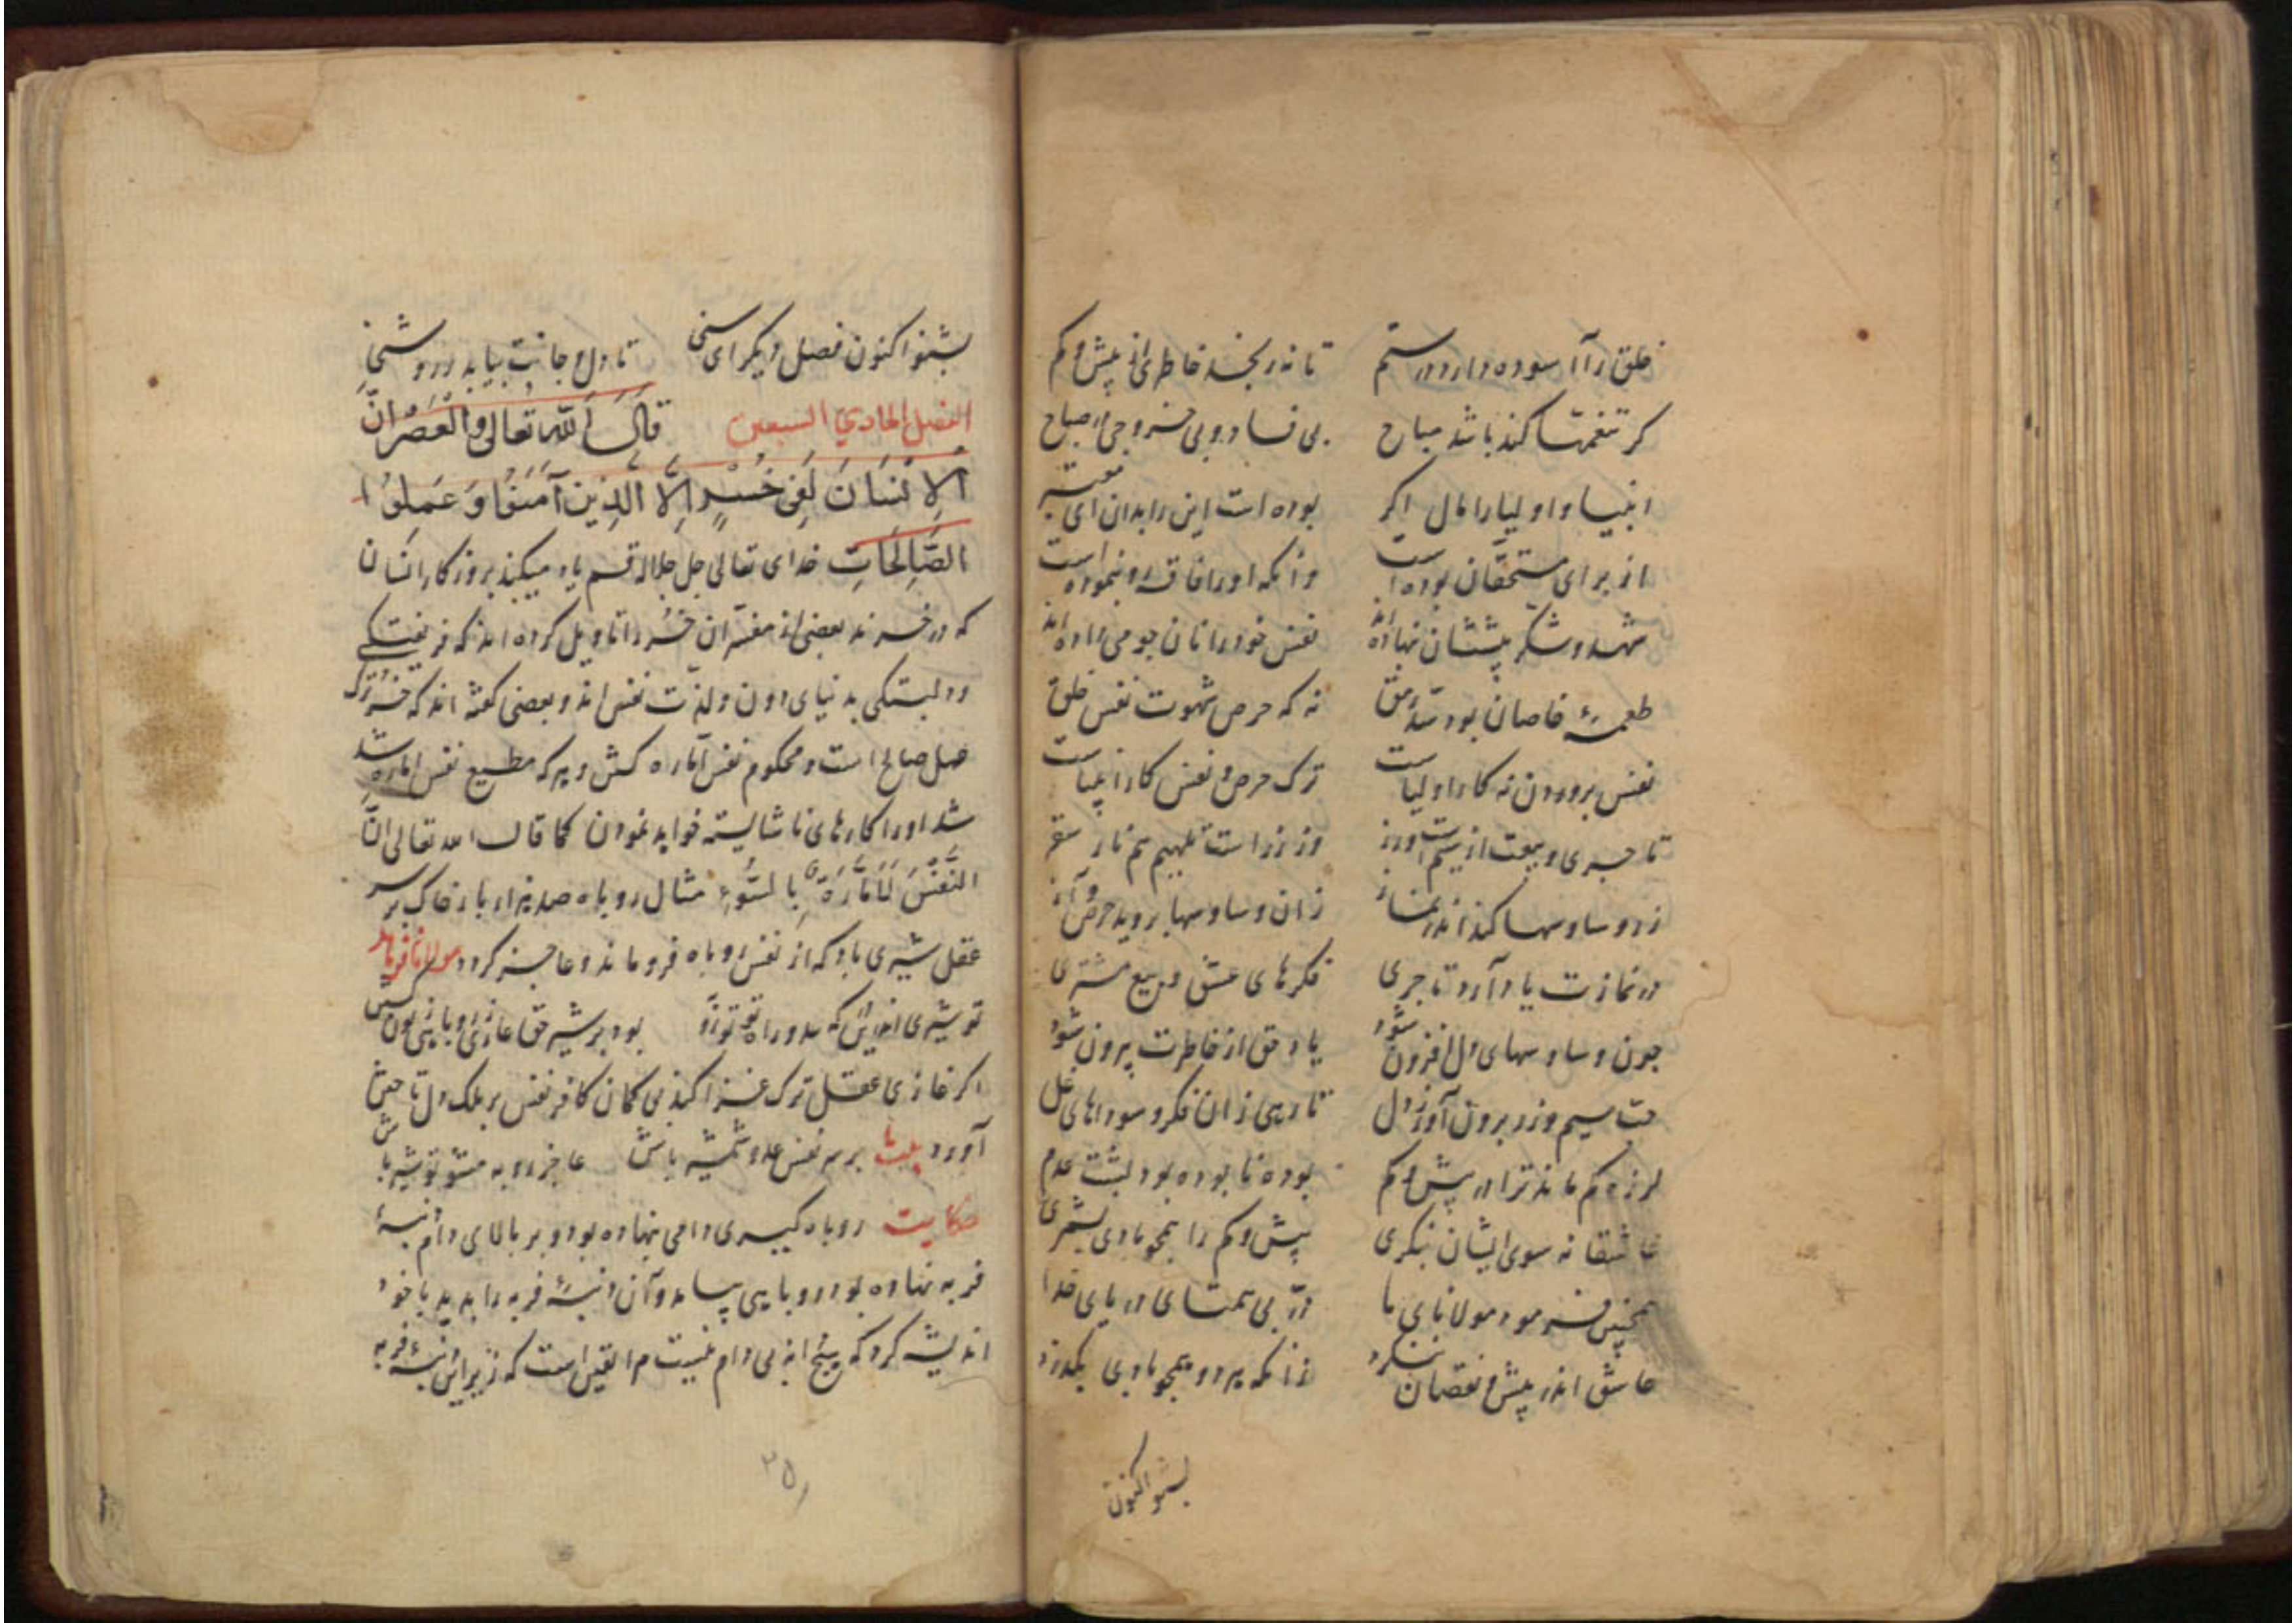 خلق را آسوده دارد در ستم تا نرنجد خاطری از بیش و کم
کر تنعمها کند باشد مباح بی فساد و بی خروجی از صباح
انبیا و اولیا را مال اکر بوده است این را بدان ای معتبر
از برای مستحقان بوده است وانکه او را فاقه رو بنموده است
شهد و شکر پیششان بنهاده اند نفس خود را نان جو می داده اند
طعمهٔ خاصان بود نه که حرص شهوت نفس خلق
نفس پروردن نه کار اولیاست ترک حرص و نفس کار انبیاست
تاجری و بیعت از سیمست و زر وز زر است تلهیم هم نار سقر
زر وساوسها کند اندر نماز زان وساوسها بروید حرص و آز
در نمازت یاد آرد تاجری فکرهای عشق و بیع مشتری
جون وساوسهای دل افزون شود یاد حق از خاطرت بیرون شود
حب سیم و زر برون آور ز دل تا رهی زان فکر و سوداهای غل
لرزه کم ماند ترا در بیش و کم بوده نابوده بود پشت عدم
عاشقانه سوی ایشان ننکری بیش و کم را همجو بادی بشمری
همچنین فرمود مولانای ما در بی همتای دریای خدا
عاشق اندر بیش و نقصان ننکرد زانکه هر دو همجو بادی بکذرد
بشنو اکنون
بشنو اکنون فصل دیکر ای سنی تا دل و جانت بیابد روشنی
الفصل الحادی السبعین قَالَ اللّهُ تَعَالی وَالْعَصْرِ اِنَّ
الْاِنْسَانَ لَفِی خُسْرٍ اِلَّا الَّذِینَ آمَنُوا وَعَمِلُوا
الصَّالِحَاتِ خدای تعالی جل جلاله قسم یاد میکند بروزکار انسان
که در خسرند بعضی از مفسران خسر را تاویل کرده اند که فریفتکی
و دلبستکی به دنیای دون و لذت نفس اند و بعضی کفته اند که خسر ترک
صالح است و محکوم نفس اماره کش و هر که مطیع نفس اماره شد
شد او را کارهای ناشایسته خواهد نمودن کما قال الله تعالی اِنَّ
النَّفْسَ لَاَمَّارَةٌ بِالسُّوءِ مثال روباه صد هزار بار خاک بر سر
عقل شیری باد که از نفس روباه فرو ماند و عاجز کردد مولانا فرماید
تو شیری بود بر شیر حق عار
اکر غازی عقل ترک غزا کند بی کمان کافر نفس بر ملک دل تاختن
آورد بیت بر سر نفس عدو شمشیر باش عاجز روبه مشو تو شیر باش
حکایت روباه کیری دامی نهاده بود و بر بالای دام دنبهٔ
فربه نهاده بود روباهی بیامد و آن دنبهٔ فربه را بدید با خود
اندیشه کرد که هیچ دنبه بی دام نیست مرا یقین است که زیر این دنبهٔ فربه
۲۵۱